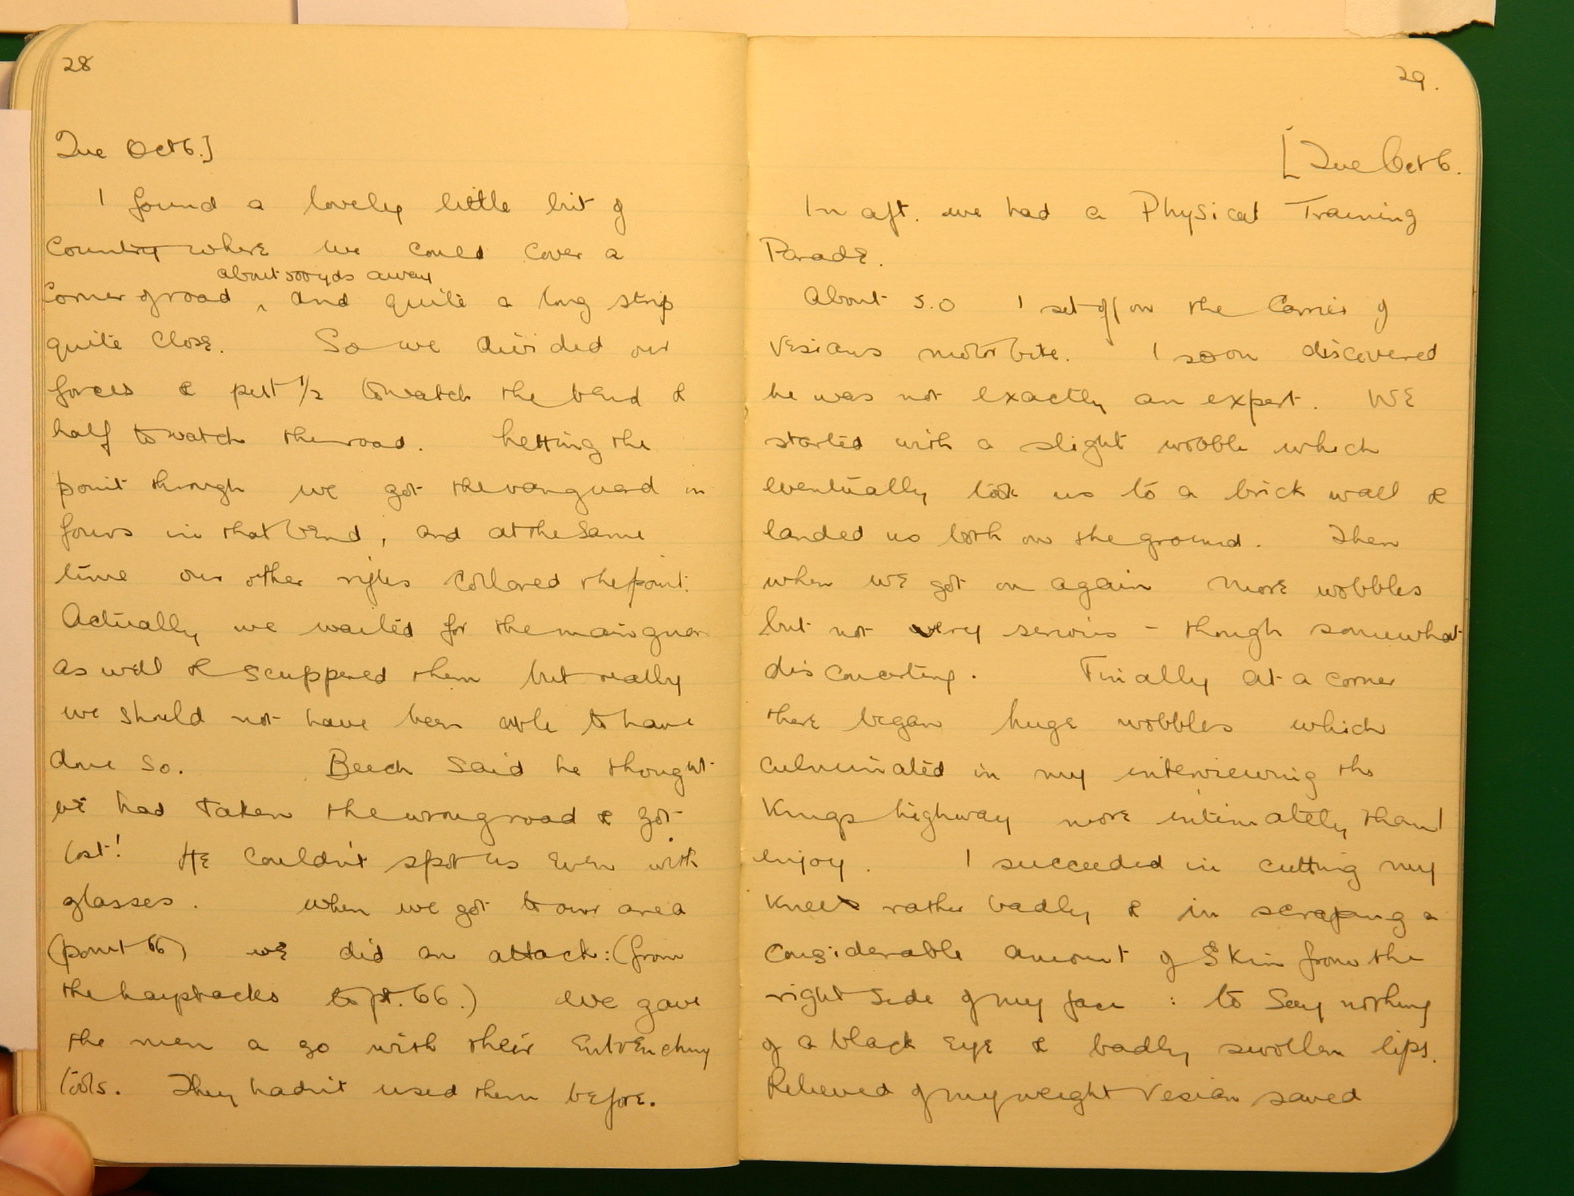 28
Tue Oct 6.]
I found a lovely little bit of
country where we could cover a
about 500 yds away
corner of road ‸ and quite a long strip
quite close. So we divided our
forces & put 1/2 to watch the bend &
half to watch the road. Letting the
point through we got the vanguard in
fours in that bend, and at the same
time our other rifles collared the point.
Actually we waited for the mainguar
as well & scuppered them but really
we should not have been able to have
done so. Beech said he thought
we had taken the wrong road & got
lost! He couldn't spot us even with
glasses. When we got to our area
(point 66) we did an attack: (from
the haystacks to pt. 66.) We gave
the men a go with their entrenching
tools. They hadn't used them before.
29.
[Tue Oct 6.
In aft. we had a Physical Training
Parade.
About 5.0 I set off on the carrier of
Vesians motorbike. I soon discovered
he was not exactly an expert. We
started with a slight wobble which
eventually took us to a brick wall &
landed us both on the ground. Then
when we got on again more wobbles
but not very serious - though somewhat
disconcerting. Finally at a corner
there began huge wobbles which
culminated in my interviewing the
Kings highway more intimately than I
enjoy. I succeeded in cutting my
knees rather badly & in scraping a
considerable amount of skin from the
right side of my face : to say nothing
of a black eye & badly swollen lips.
Relieved of my weight Vesian saved